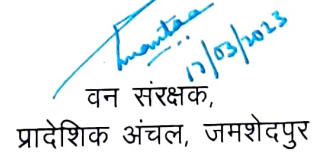 17/03/2023
वन संरक्षक,
प्रादेशिक अंचल, जमशेदपुर